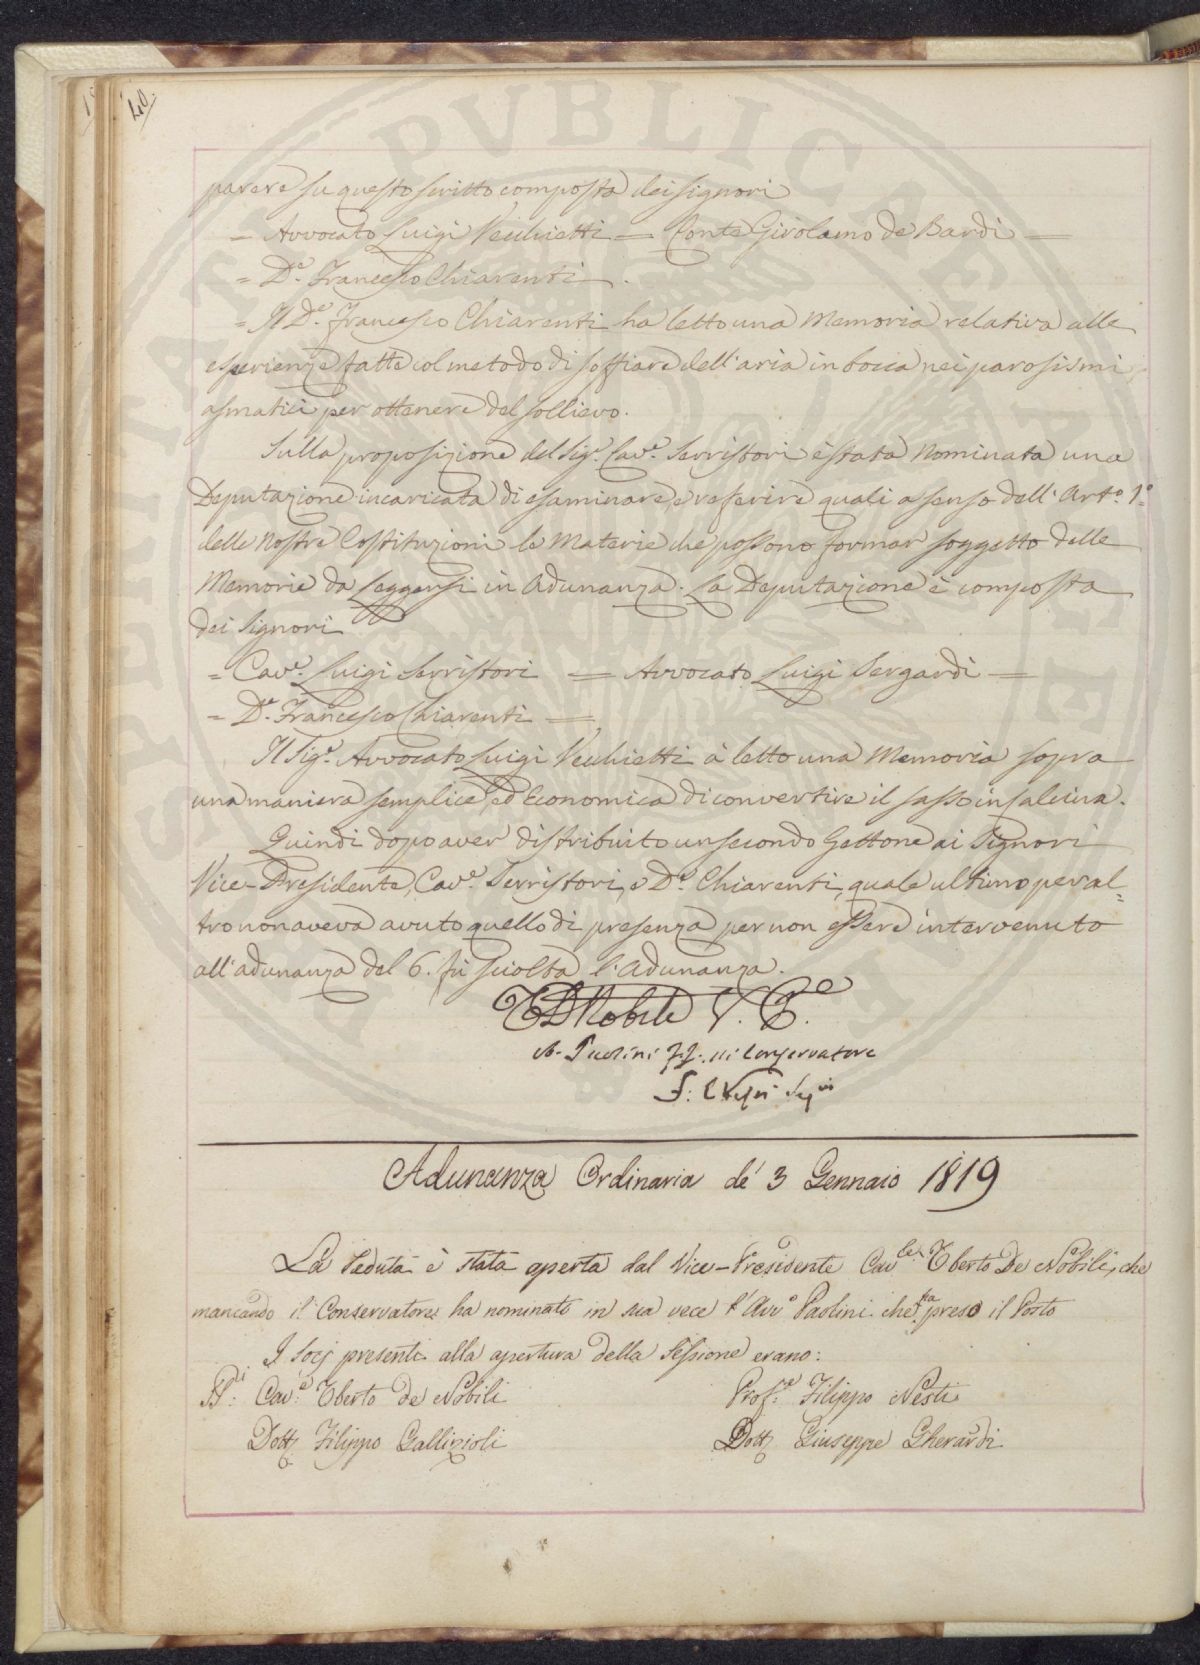 40.
parere su questo scritto composta dei signori
= Avvocato Luigi Vecchietti = Conte Girolamo de Bardi =
= D.e Francesco Chiarenti.
= Il D.e Francesco Chiarenti ha letto una Memoria relativa alle
esperienze fatte col metodo di soffiare dell'aria in bocca nei parosismi
asmatici per ottenere del sollievo.
Sulla proposizione del Sig.e Cav.e Serristori è stata nominata una
Deputazione incaricata di esaminare, e referire quali a senso dell'Art.o 1.o
delle nostre Costituzioni le Materie che possono formar soggetto delle
Memorie da leggersi in Adunanza. La Deputazione è composta
dei Signori
= Cav.e Luigi Serristori = Avvocato Luigi Sergardi =
= D.e Francesco Chiarenti =
Il Sig.e Avvocato Luigi Vecchietti à letto una Memoria sopra
una maniera semplice, ed Economica di convertire il sasso in calcina.
Quindi dopo aver distribuito un secondo Gettone ai Signori
Vice-Presidente, Cav.e Serristori, e D.e Chiarenti, quale ultimo per al=
tro non aveva avuto quello di presenza per non essere intervenuto
all'adunanza del 6. fù sciolta l'Adunanza.
TD Nobili V. P.e
A. Paolini ff. di Conservatore
Adunanza Ordinaria de' 3 Gennaio 1819
La Seduta è stata aperta dal Vice-Presidente Cav.le Tberto De Nobili, che
mancando il Conservatore ha nominato in sua vece l'Avv.o Paolini che ha preso il Posto
I Socj presenti alla apertura della Sessione erano:
SS.ri Cav.e Tberto de Nobili Prof.re Filippo Nesti
Dott. Filippo Gallizioli Dott. Giuseppe Gherardi